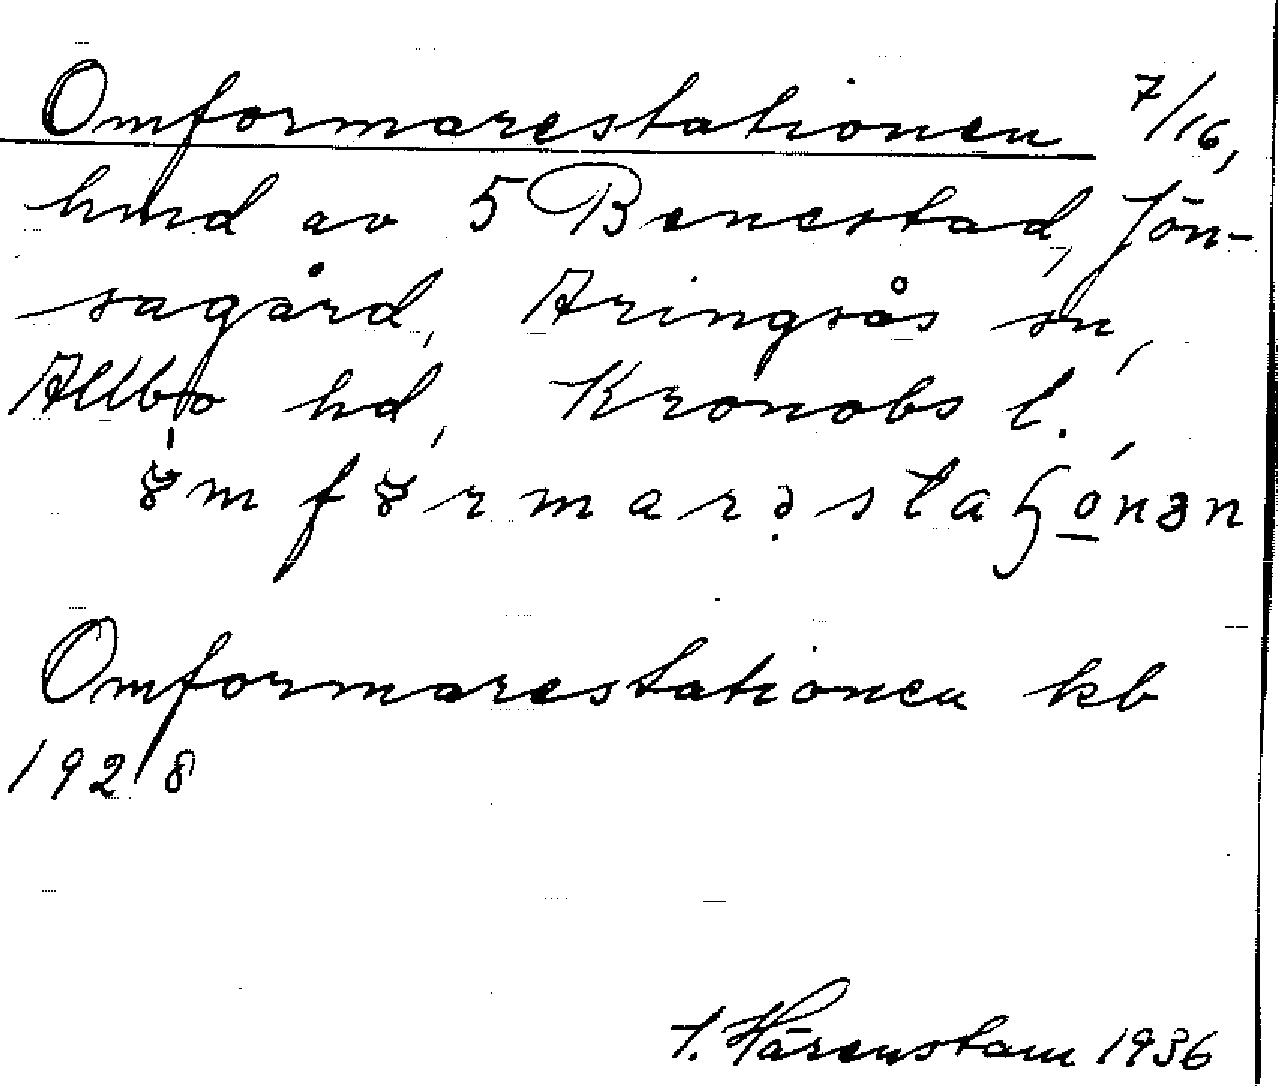 Omformarestationen 7/16,
hmd av 5 Benestad, Jön-
sagård, Aringsås sn,
Allbo hd, Kronobs l.
Omformarestationen kb
1928
T. Härenstam 1936